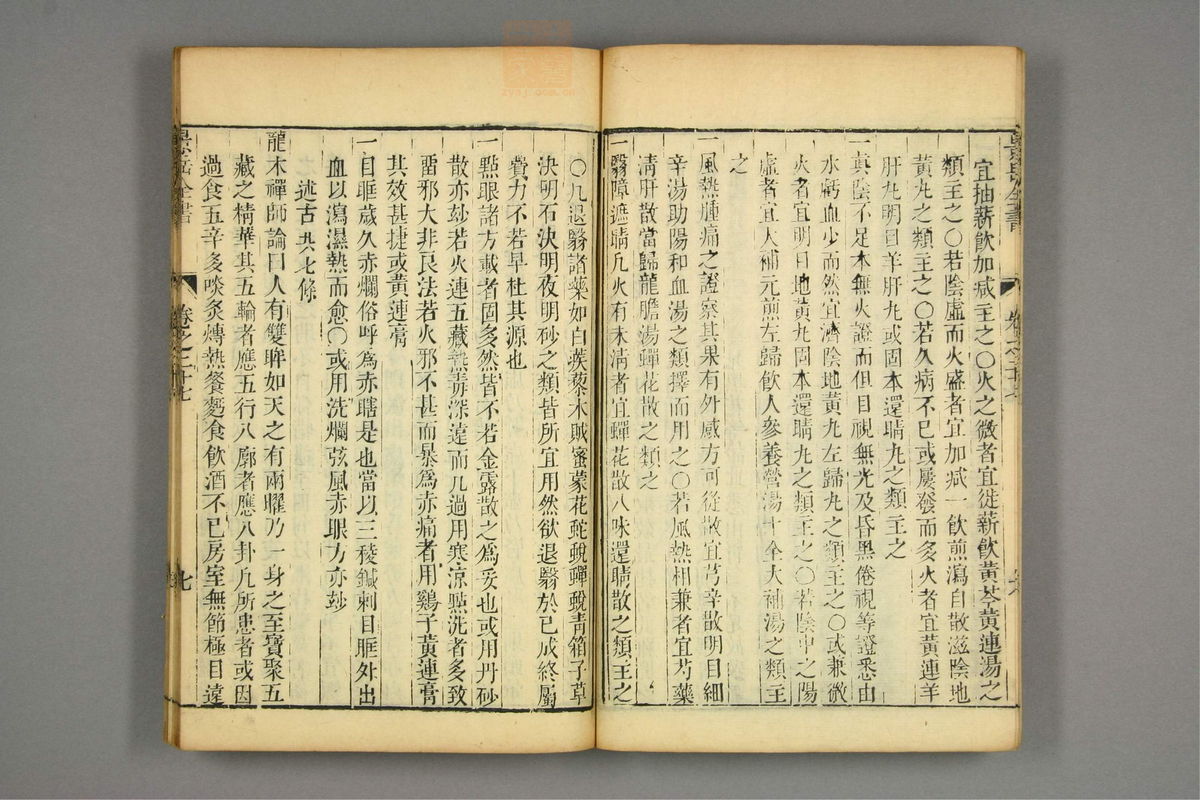 宜抽薪飲加减主之〇火之微者宜徙薪飲黃芩黃連湯之
類主之〇若陰虛而火盛者宜加减一飲煎瀉白散滋陰地
黃丸之類主之〇若久病不已或屢發而多火者宜黃連羊
肝丸明目羊肝丸或固本還睛丸之類主之
一眞陰不足本無火證而但目視無光及昏黑倦視等證悉由
水虧血少而然宜濟陰地黃丸左歸丸之類主之〇或兼微
火者宜明目地黃丸固本還睛丸之類主之〇若陰中之陽
虛者宜大補元煎左歸飲人參養營湯十全大補湯之類主
之
一風熱腫痛之證察其果有外感方可從散宜芎辛散明目細
辛湯助陽和血湯之類擇而用之〇若風熱相兼者宜芍藥
清肝散當歸龍膽湯蟬花散之類之
一翳障遮睛凡火有未清者宜蟬花散八味還睛散之類主之
〇凡退翳諸藥如白蒺藜木賊蜜蒙花蛇蛻蟬蛻青箱子草
決明石決明夜明砂之類皆所宜用然欲退翳於已成終屬
費力不若早杜其源也
一點眼諸方載者固多然皆不若金露散之爲妥也或用丹砂
散亦玅若火連五藏熱毒深遠而凡過用寒涼點洗者多致
留邪大非良法若火邪不甚而暴爲赤痛者用鷄子黃連膏
其效甚捷或黃連膏
一目眶歲久赤爛俗呼爲赤瞎是也當以三稜鍼刺目眶外出
血以瀉濕熱而愈〇或用洗爛弦風赤眼方亦玅
述古共七條
龍木禪師論曰人有雙眸如天之有兩曜乃一身之至寶聚五
藏之精華其五輪者應五行八廓者應八卦凡所患者或因
過食五辛多啖炙煿熱餐麪食飲酒不已房室無節極目遠
卷之二十七
七
zyhj.com.cn